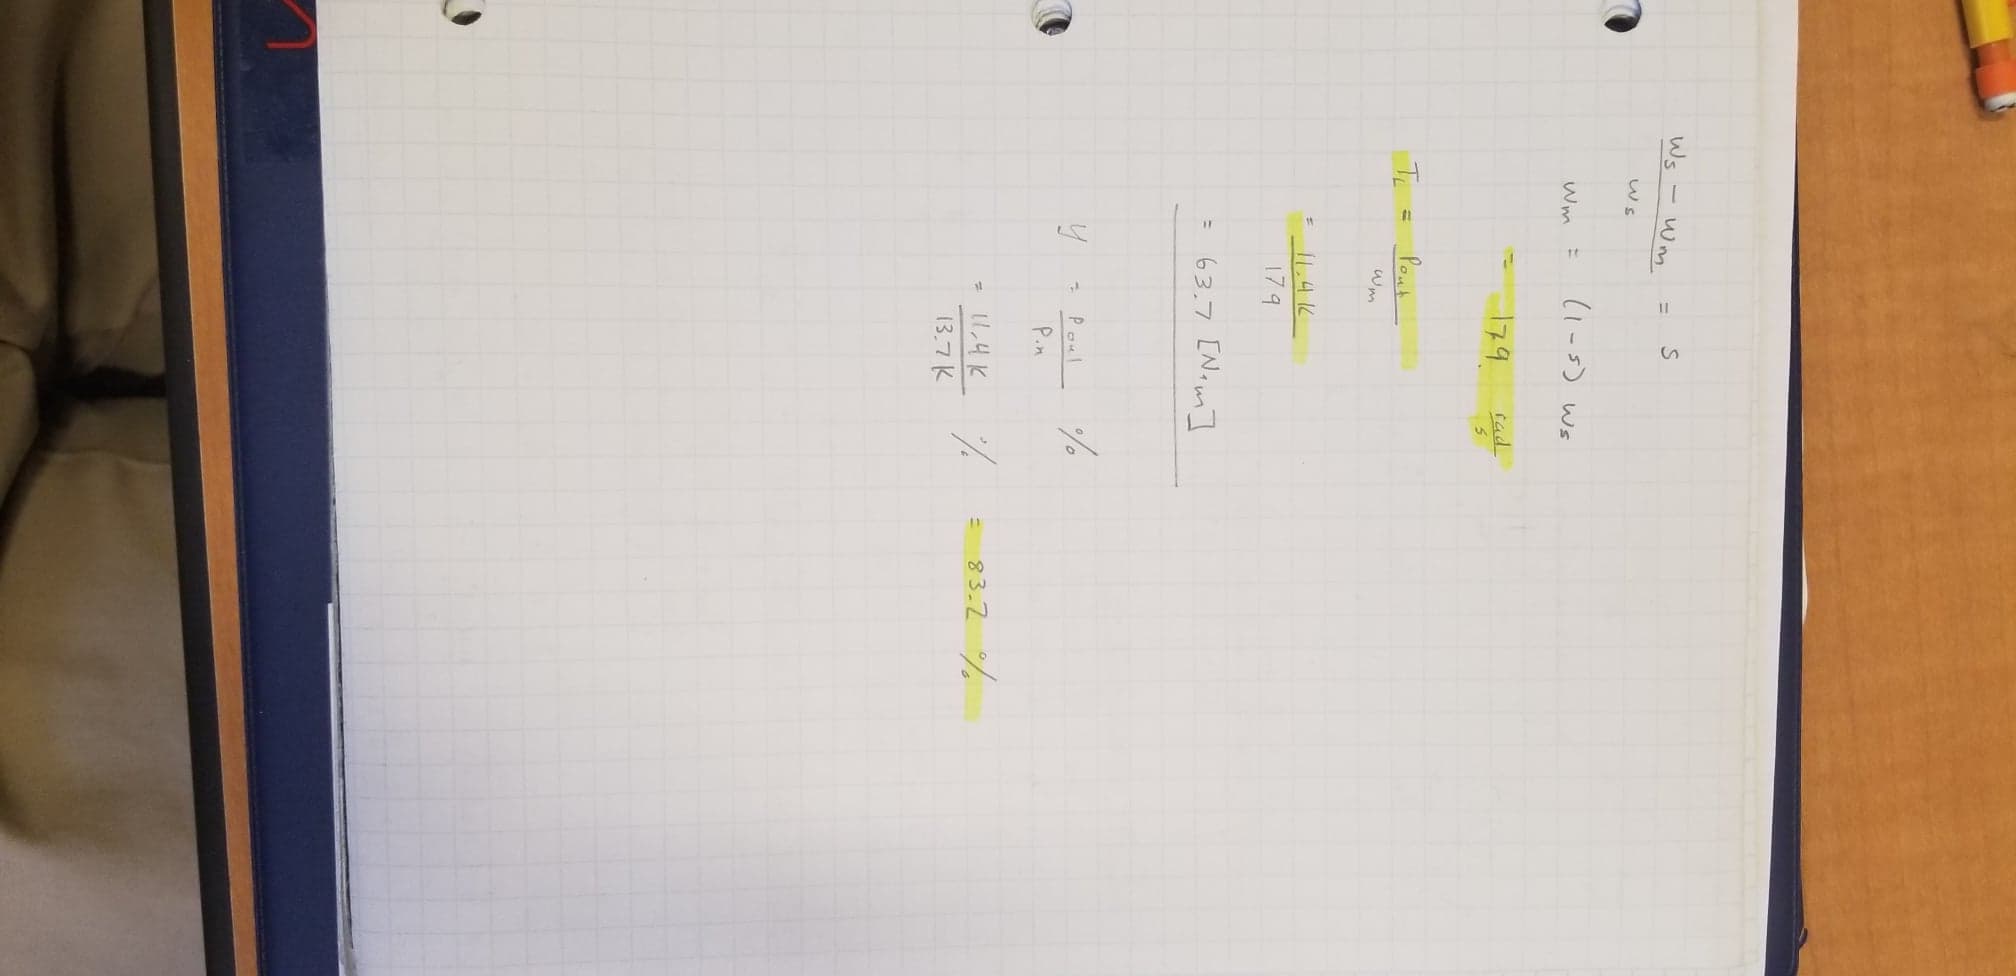 Ws - Wm = S
Ws
Wm = (1-s) Ws
= 179. rad
s
TL = Pout
Wm
= 11.4K
179
= 63.7 [N.m]
y = Pout %
Pin
= 11.4K % = 83.2 %
13.7K